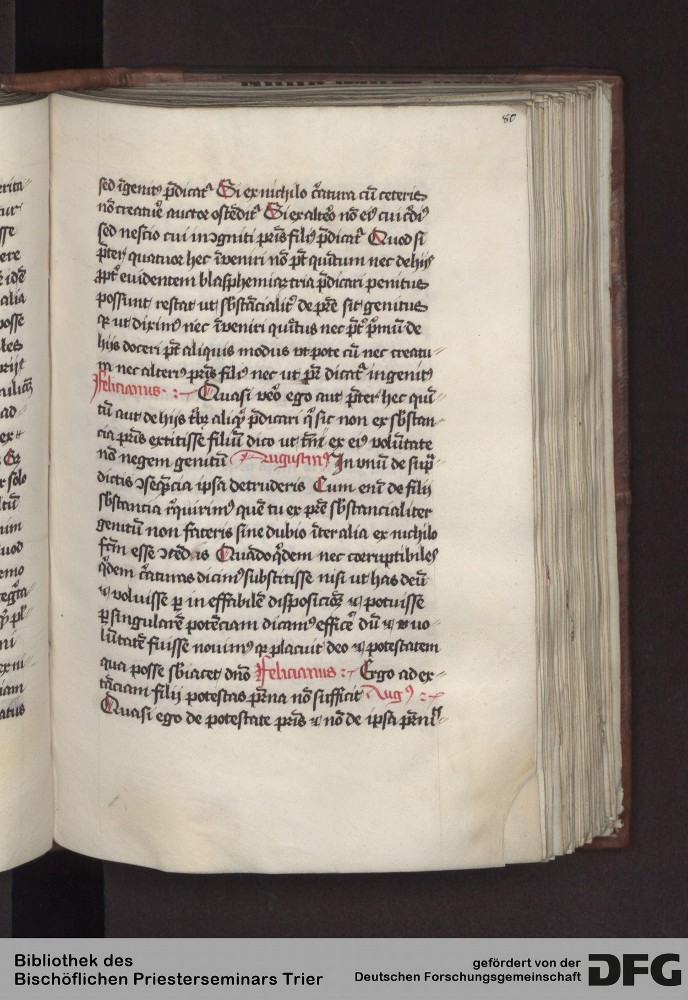 80
sed īgenitꝰ p̄dicatᷣ Si ex nichilo c̄atura cū ceteris
nō creatuẽ auctor ostēditᷣ Si ex altẽo nō eiꝰ cui c̄diꝰ
sed nescio cui incogniti pr̄is filiꝰ p̄dicatᷣ Quod si
p̄ter quatuor hec īveniri nō pt̄ quātum nec de hijs
ꝓptᷣ evidentem blasphemiaꝝ tria p̄dicari penitus
possunt restat ut sb̄stācialitᷣ de pr̄e sit genitus
qꝛ ut diximꝰ nec īveniri quītus nec pt̄ pͥmū de
hijs doceri pt̄ aliquis modus ut pote cū nec creatu
ra nec alteriꝰ pr̄is filiꝰ nec ut pr̄ dicatᷣ ingenitꝰ
Felicianus Quasi veͦo ego aut p̄ter hec quī
tū aut de hijs tͥbꝫ aliqͥ p̄dicari qͥ sic non ex sb̄stan
cia pr̄is extitisse filiū dico ut tn̄ ex eiꝰ volūtate
nō negem genitū Augustinꝰ In unū de supᷣ
dictis ↄseqn̄cia ipsa detruderis Cum enī de filij
sb̄stancia īquirimꝰ quē tu ex pr̄e sb̄stancialiter
genitū non fateris sine dubio īter alia ex nichilo
fcm̄ esse ↄtēdis Quādo qͥdem nec corruptibiles
qͥdem c̄aturas dicimꝰ substitisse nisi ut has deū
⁊ voluisse per in effabilē disposicōꝫ ⁊ potuisse
ꝑ singularē potēciam dicamꝰ efficẽ dū ⁊ uo
lūtatē fuisse novimꝰ qꝛ placuit deo ⁊ potestatem
qua posse sb̄iacet dn̄o Felicianus Ergo ad ex
tāciam filij potestas pr̄na nō sufficit Augꝰ
Quasi ego de potestate pr̄is ⁊ nō de ipsa pr̄ni
Bibliothek des
Bischöflichen Priesterseminars Trier
gefördert von der
Deutschen Forschungsgemeinschaft
DFG